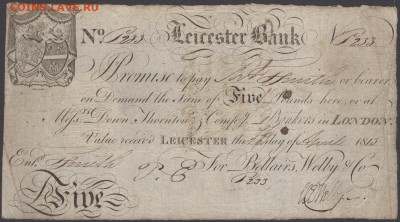 No P233 Leicester Bank P233
I Promise to pay Thos Smith or bearer
on Demand the Sum of Five Pounds here, or at
Messrs Down Thornton & Compy Bankers in LONDON.
Value received LEICESTER the day of April 1813
Entd Smith For Bellairs, Welby & Co
P233
Five
СОІЛS.LAVE.RU